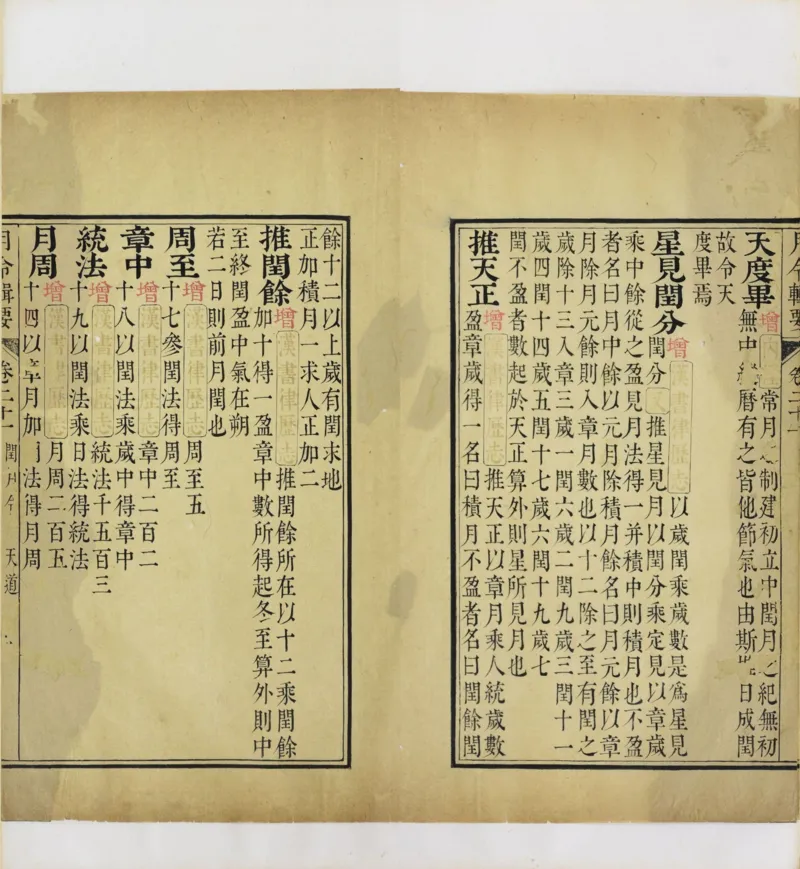 月令輯要
卷二十一
天度畢
增
常月之制建初立中閏月之紀無初
無中 曆有之皆他節氣也由斯 日成閏
故令天
度畢焉
星見閏分
增
漢書律歷志
以歲閏乘歲數是爲星見
閏分
推星見月以閏分乘定見以章歲
乘中餘從之盈見月法得一并積中則積月也不盈
者名曰月中餘以元月除積月餘名曰月元餘以章
月除月元餘則入章月數也以十二除之至有閏之
歲除十三入章三歲一閏六歲二閏九歲三閏十一
歲四閏十四歲五閏十七歲六閏十九歲七
閏不盈者數起於天正算外則星所見月也
推天正
增
漢書律歷志
推天正以章月乘人統歲數
盈章歲得一名曰積月不盈者名曰閏餘閏
餘十二以上歲有閏求地
正加積月一求人正加二
推閏餘
增
漢書律歷志
推閏餘所在以十二乘閏餘
加十得一盈章中數所得起冬至算外則中
至終閏盈中氣在朔
若二日則前月閏也
周至
增
漢書律歷志
周至五
十七參閏法得周至
章中
增
漢書律歷志
章中二百二
十八以閏法乘歲中得章中
統法
增
漢書律歷志
統法千五百三
十九以閏法乘日法得統法
月周
增
漢書律歷志
月周二百五
十四以章月加閏法得月周
月令輯要
卷二十一
閏月令
天道